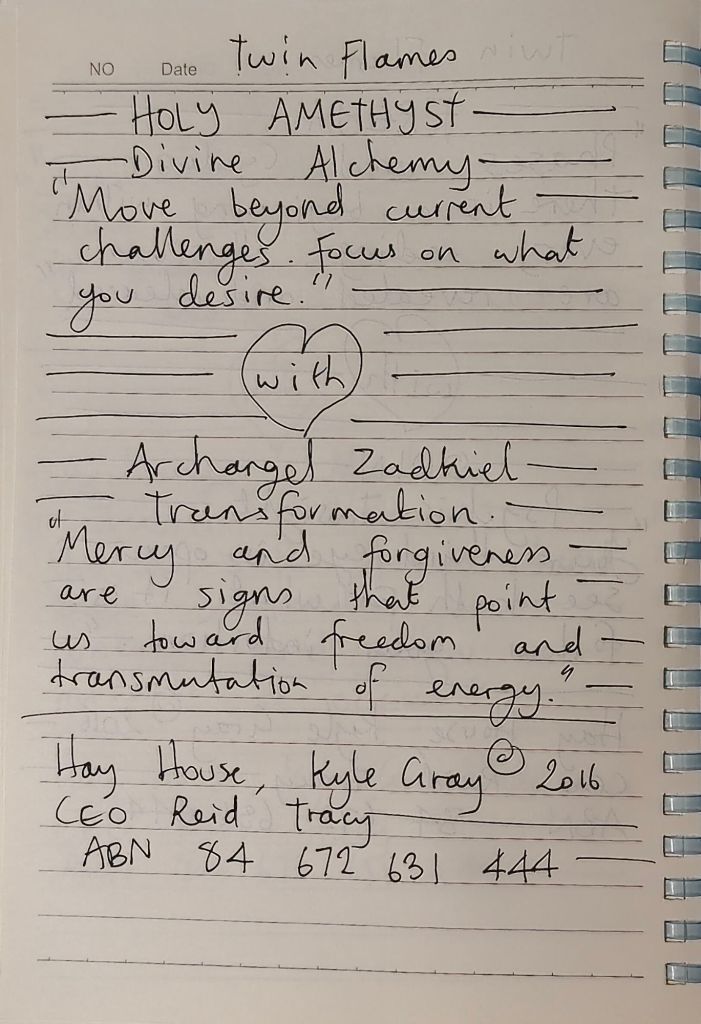 Twin Flames
NO Date
HOLY AMETHYST
Divine Alchemy
"Move beyond current
challenges. Focus on what
you desire."
with
Archangel Zadkiel
Transformation.
"Mercy and forgiveness
are signs that point
us toward freedom and
transmutation of energy."
Hay House, Kyle Gray © 2016
CEO Reid Tracy
ABN 84 672 631 444